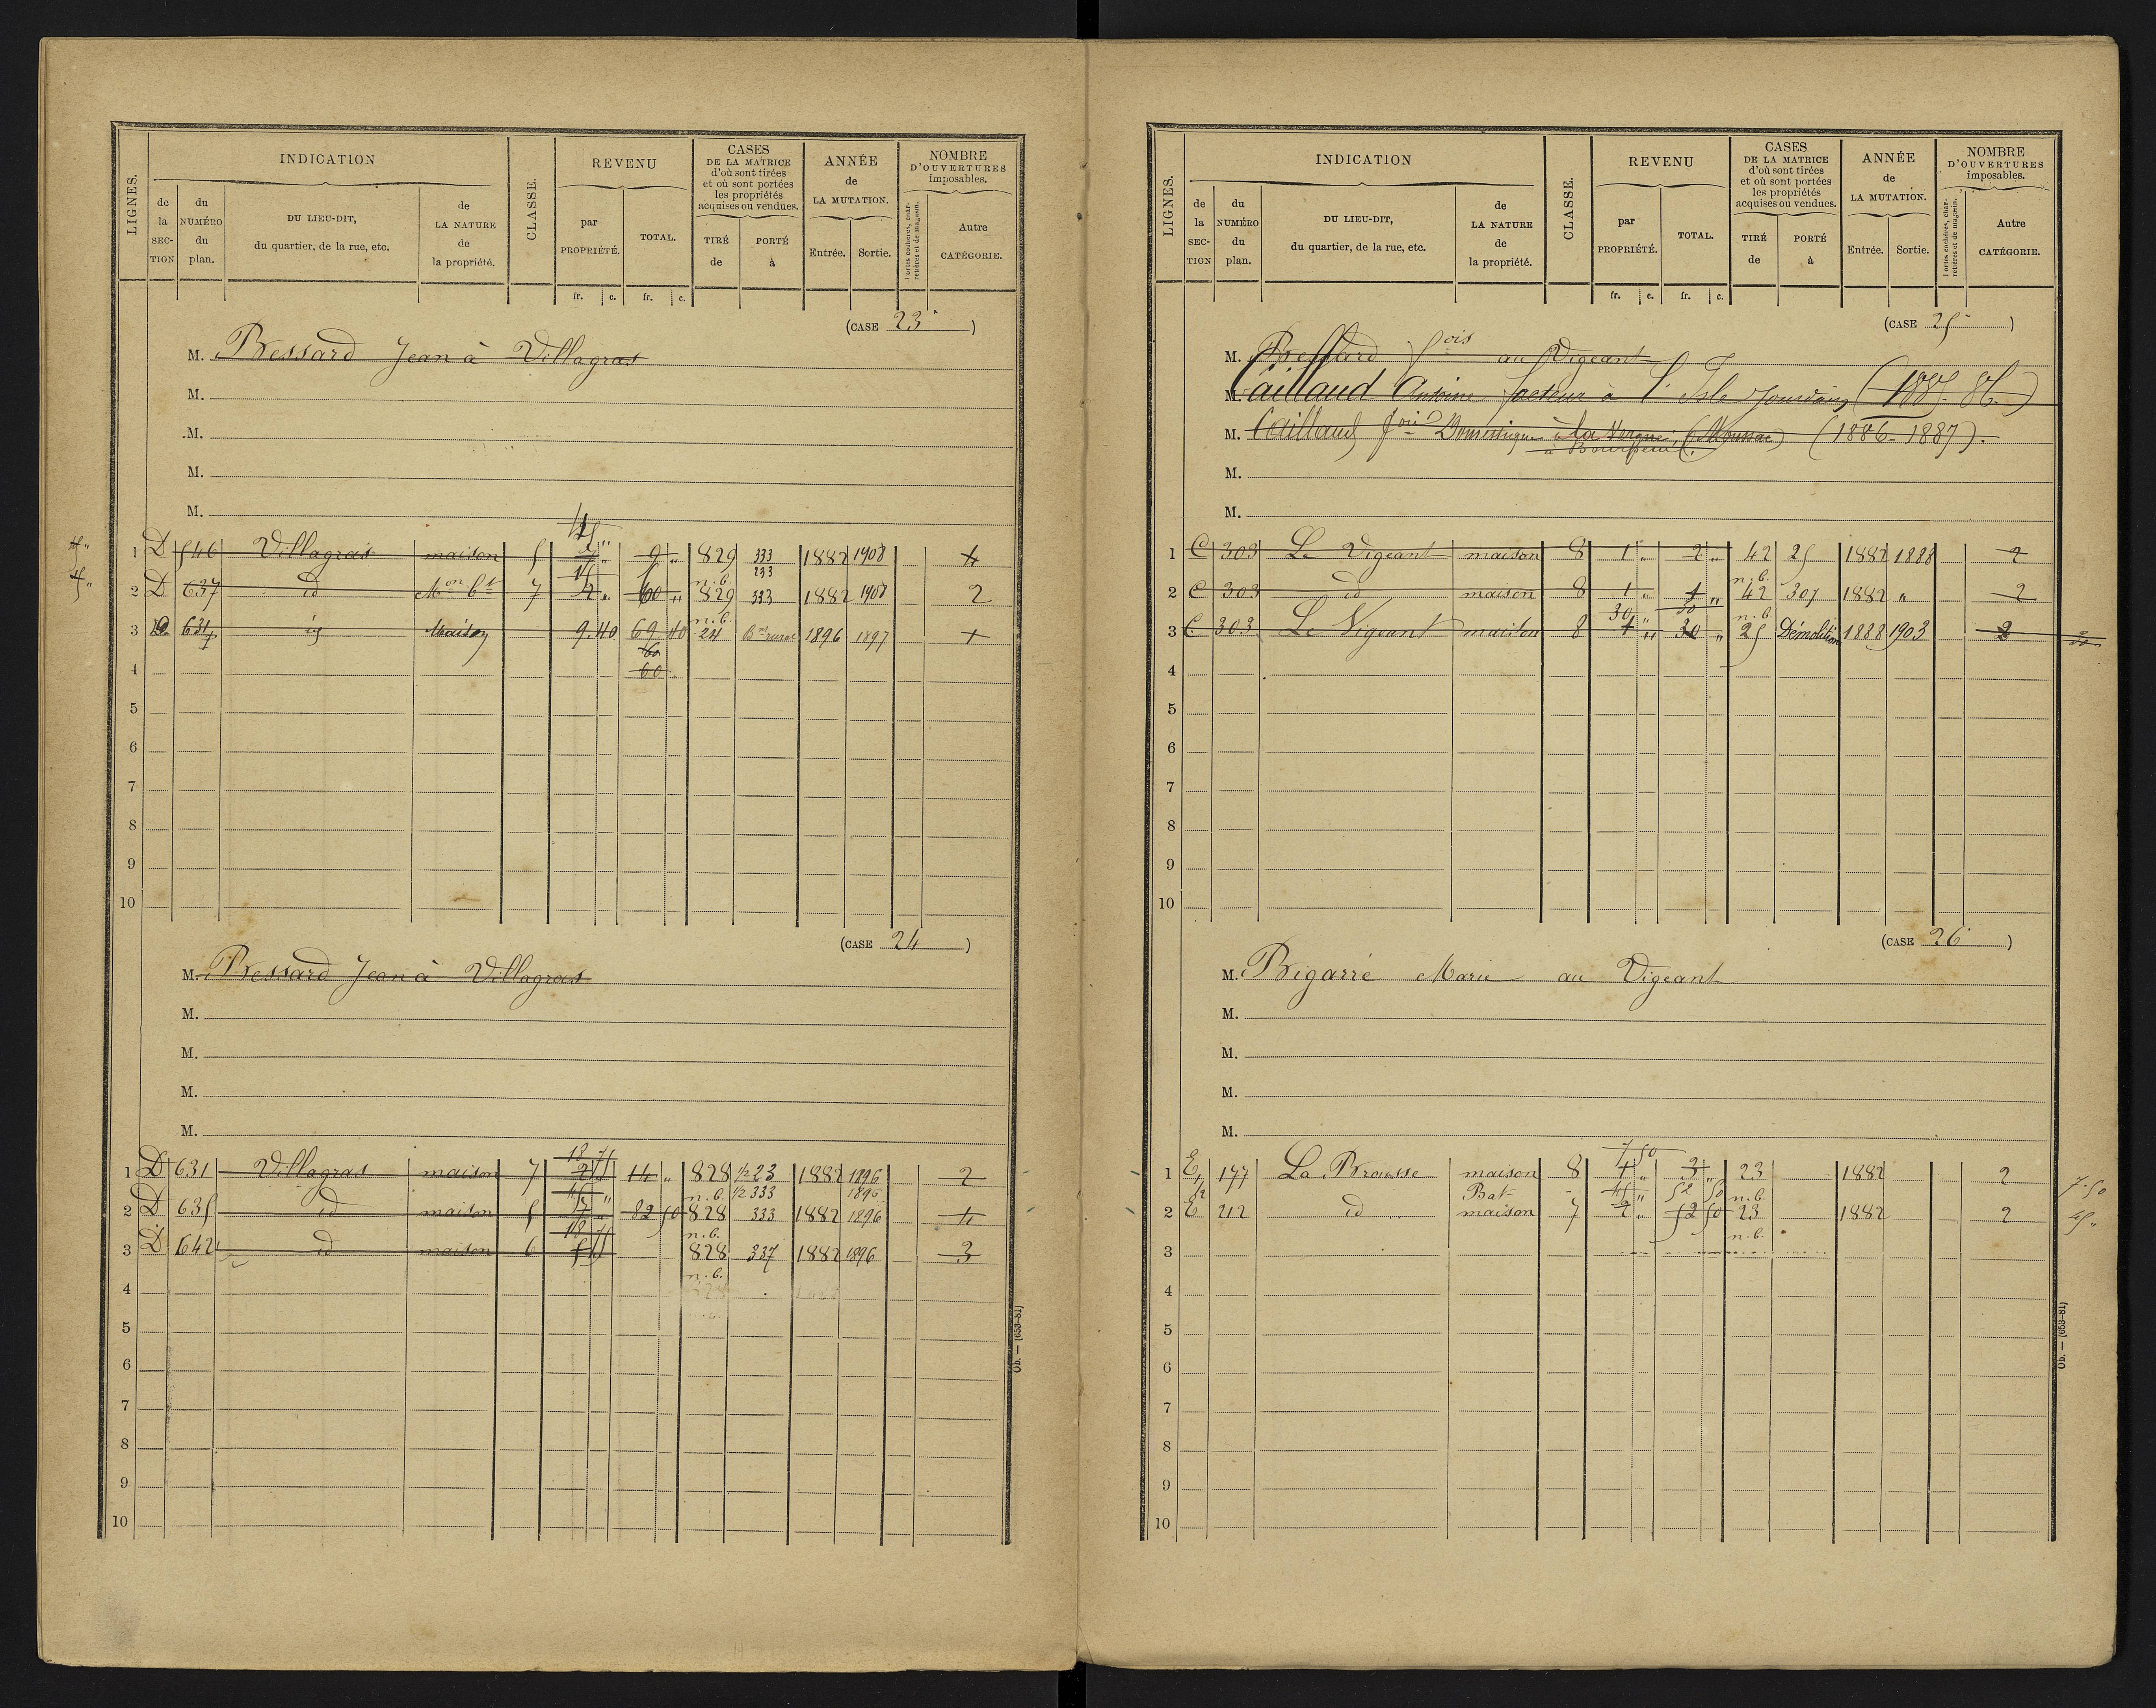 LIGNES. INDICATION CLASSE. REVENU CASES DE LA MATRICE d'où sont tirées et où sont portées les propriétés acquises ou vendues. ANNÉE de LA MUTATION. NOMBRE D'OUVERTURES imposables.
de la SECTION du NUMÉRO du plan. DU LIEU-DIT, du quartier, de la rue, etc. de LA NATURE de la propriété. par PROPRIÉTÉ. TOTAL. TIRÉ de PORTÉ à Entrée. Sortie. Portes cochères, charretières et de magasin. Autre CATÉGORIE.
fr. c. fr. c.
(CASE 23)
M. Bessard Jean à Villagras
M.
M.
M.
M.
1 D 546 Villagras maison 5 9 829 333 1882 1908
233
2 D 637 id Mon Bt 7 2 60 n.b. 829 333 1882 1908 2
3 D 631 id Maison 9.40 69 40 n.b. 24 Bt rural 1896 1897 1
60
4 60
5
6
7
8
9
10
(CASE 24)
M. Bessard Jean à Villagras
M.
M.
M.
M.
18 75
1 D 631 Villagras maison 7 14 " 828 1/2 23 1882 1896 2
n.b. 1/2 333 1896
2 D 635 id maison 5 82 50 828 333 1882 1896 4
18 75 n.b.
3 D 642 id maison 6 828 337 1882 1896 3
n.b.
4
5
6
7
8
9
10
Ob. — (653-81)
LIGNES. INDICATION CLASSE. REVENU CASES DE LA MATRICE d'où sont tirées et où sont portées les propriétés acquises ou vendues. ANNÉE de LA MUTATION. NOMBRE D'OUVERTURES imposables.
de la SECTION du NUMÉRO du plan. DU LIEU-DIT, du quartier, de la rue, etc. de LA NATURE de la propriété. par PROPRIÉTÉ. TOTAL. TIRÉ de PORTÉ à Entrée. Sortie. Portes cochères, charretières et de magasin. Autre CATÉGORIE.
fr. c. fr. c.
(CASE 25)
M. Bessard fois au Vigeant
M. Caillaud Antoine facteur à l'Isle Jourdain (1885-86.)
M. Caillaud fois Domestique à La Vergne, (Moussac) (1886-1887).
M.
M.
1 C 303 Le Vigeant maison 8 1 " 2 " 42 25 1882 1888 2
n.b.
2 C 303 id maison 8 1 " 1 " 42 305 1882 " 2
30 " 30 n.b.
3 C 303 Le Vigeant maison 8 1 " 30 " 25 Démolition 1888 1903 2 30
4
5
6
7
8
9
10
(CASE 26)
M. Bigarré Marie au Vigeant
M.
M.
M.
M.
7 50
1 E 177 La Brousse maison 8 1 " 3 " 23 1882 2 7.50
Bat 45 " 52 50 n.b.
2 E 212 id maison 7 2 " 52 50 23 1882 2 45 "
n.b.
3
4
5
6
7
8
9
10
Ob. — (653-81)